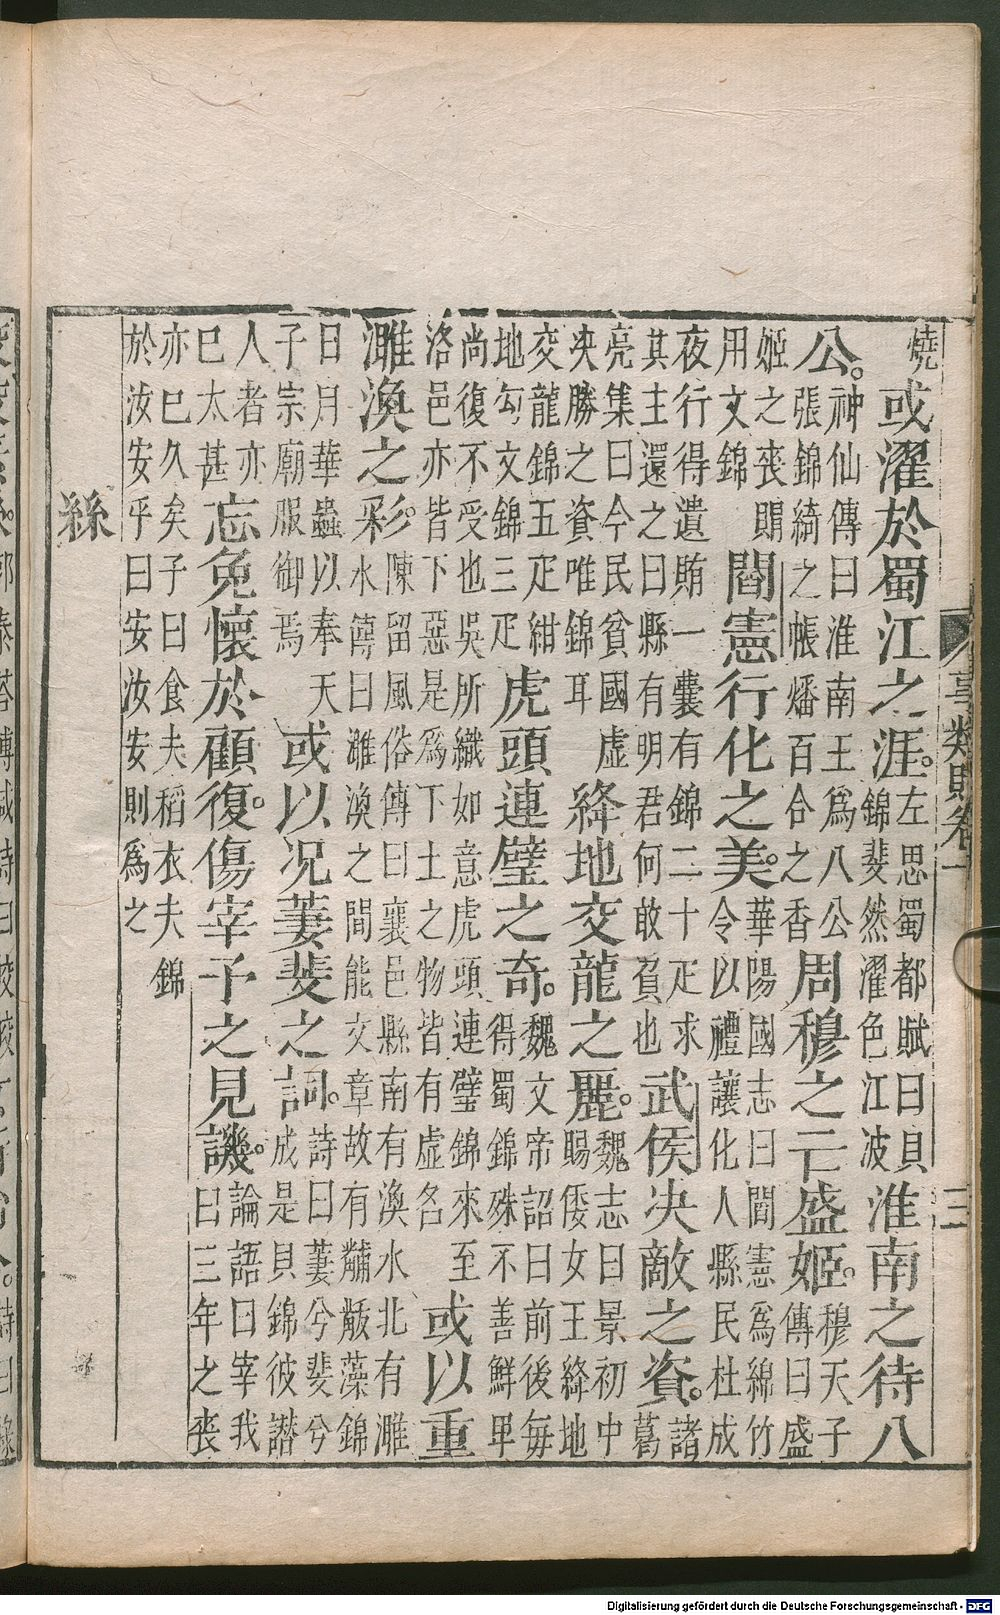 燒或濯於蜀江之涯。左思蜀都賦曰貝錦斐然濯色江波淮南之待八
公。神仙傳曰淮南王爲八公張錦綺之帳燔百合之香周穆之亡盛姬。穆天子傳曰盛
姬之喪賵用文錦閻憲行化之美。華陽國志曰閻憲爲綿竹令以禮讓化人縣民杜成
夜行得遺賄一囊有錦二十疋求其主還之曰縣有明君何敢負也武侯决敵之資。諸葛
亮集曰今民貧國虛决勝之資唯錦耳絳地交龍之麗。魏志曰景初中賜倭女王絳地
交龍錦五疋紺地勾文錦三疋虎頭連璧之奇。魏文帝詔曰前後每得蜀錦殊不善鮮卑
尚復不受也吳所織如意虎頭連璧錦來至洛邑亦皆下惡是爲下土之物皆有虛名或以重
濉渙之彩。陳留風俗傳曰襄邑縣南有渙水北有濉水傳曰濉渙之間能文章故有黼黻藻錦
日月華蟲以奉天子宗廟服御焉或以况萋斐之詞。詩曰萋兮斐兮成是貝錦彼譖
人者亦巳太甚忘免懷於顧復。傷宰予之見譏。論語曰宰我曰三年之喪
亦巳久矣子曰食夫稻衣夫錦於汝安乎曰安汝安則爲之
絲
事類賦卷 三
Digitalisierung gefördert durch die Deutsche Forschungsgemeinschaft - DFG